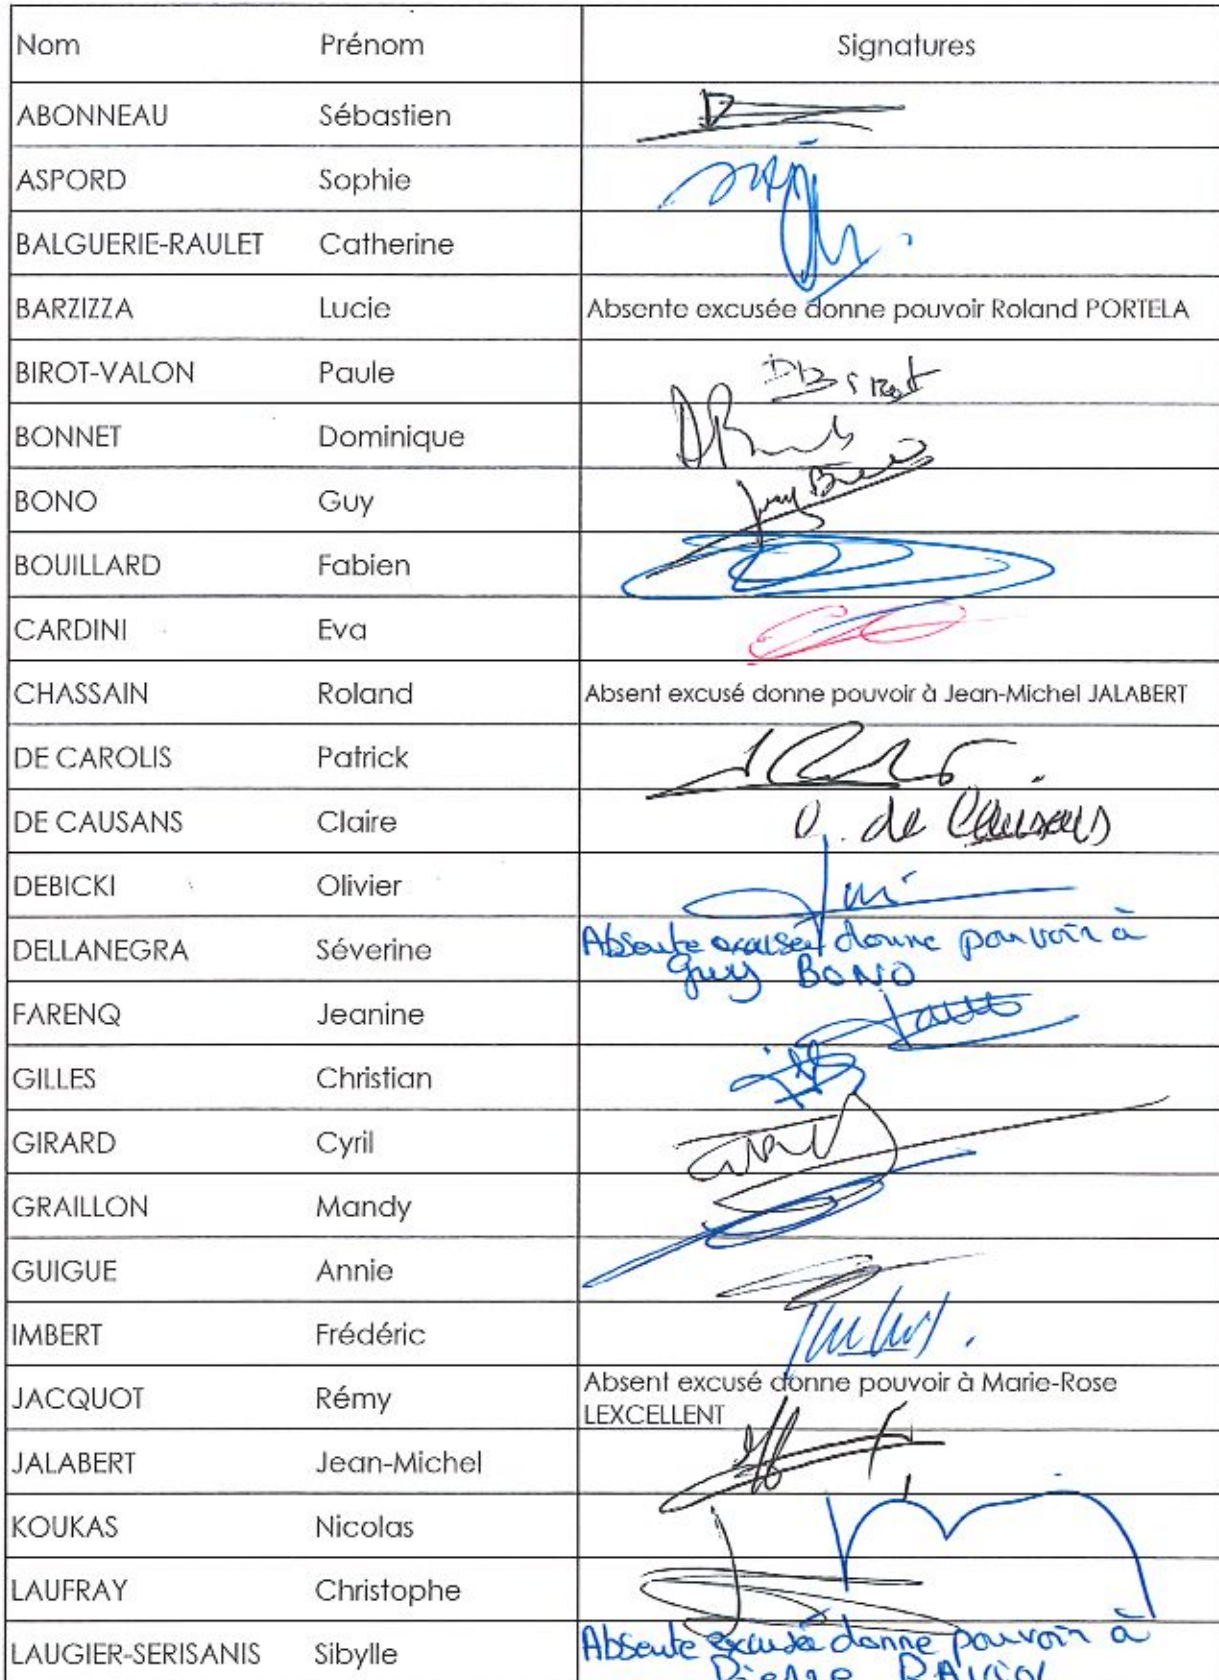 Nom Prénom Signatures
ABONNEAU Sébastien
ASPORD Sophie
BALGUERIE-RAULET Catherine
BARZIZZA Lucie Absente excusée donne pouvoir Roland PORTELA
BIROT-VALON Paule
BONNET Dominique
BONO Guy Guy Bono
BOUILLARD Fabien
CARDINI Eva
CHASSAIN Roland Absent excusé donne pouvoir à Jean-Michel JALABERT
DE CAROLIS Patrick
DE CAUSANS Claire C. de Causans
DEBICKI Olivier
DELLANEGRA Séverine Absente excusée donne pouvoir à
Guy BONO
FARENQ Jeanine
GILLES Christian
GIRARD Cyril
GRAILLON Mandy
GUIGUE Annie
IMBERT Frédéric
JACQUOT Rémy Absent excusé donne pouvoir à Marie-Rose
LEXCELLENT
JALABERT Jean-Michel
KOUKAS Nicolas
LAUFRAY Christophe
LAUGIER-SERISANIS Sibylle Absente excusée donne pouvoir à
Pierre